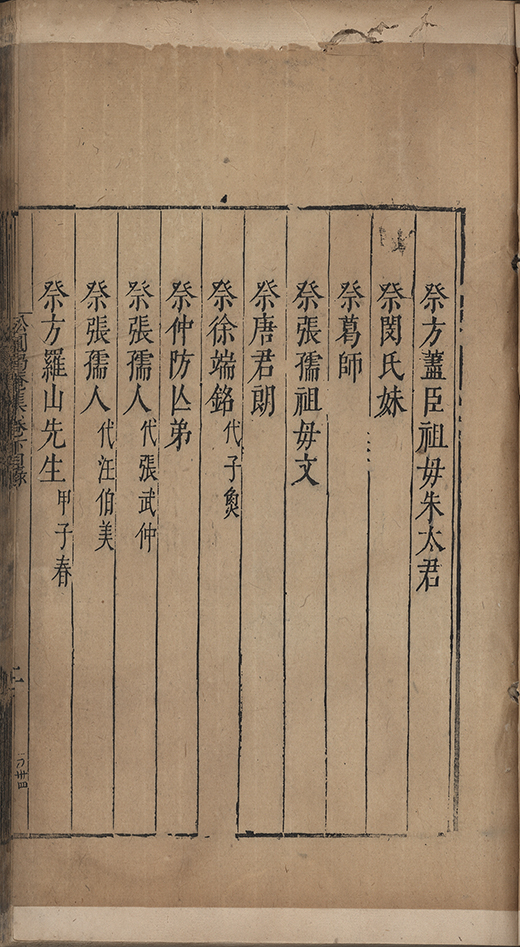 祭方藎臣祖母朱太君
祭閔氏妹
祭葛師
祭張孺祖母文
祭唐君朗
祭徐端銘代子奐
祭仲防亾弟
祭張孺人代張武仲
祭張孺人代汪伯美
祭方羅山先生甲子春